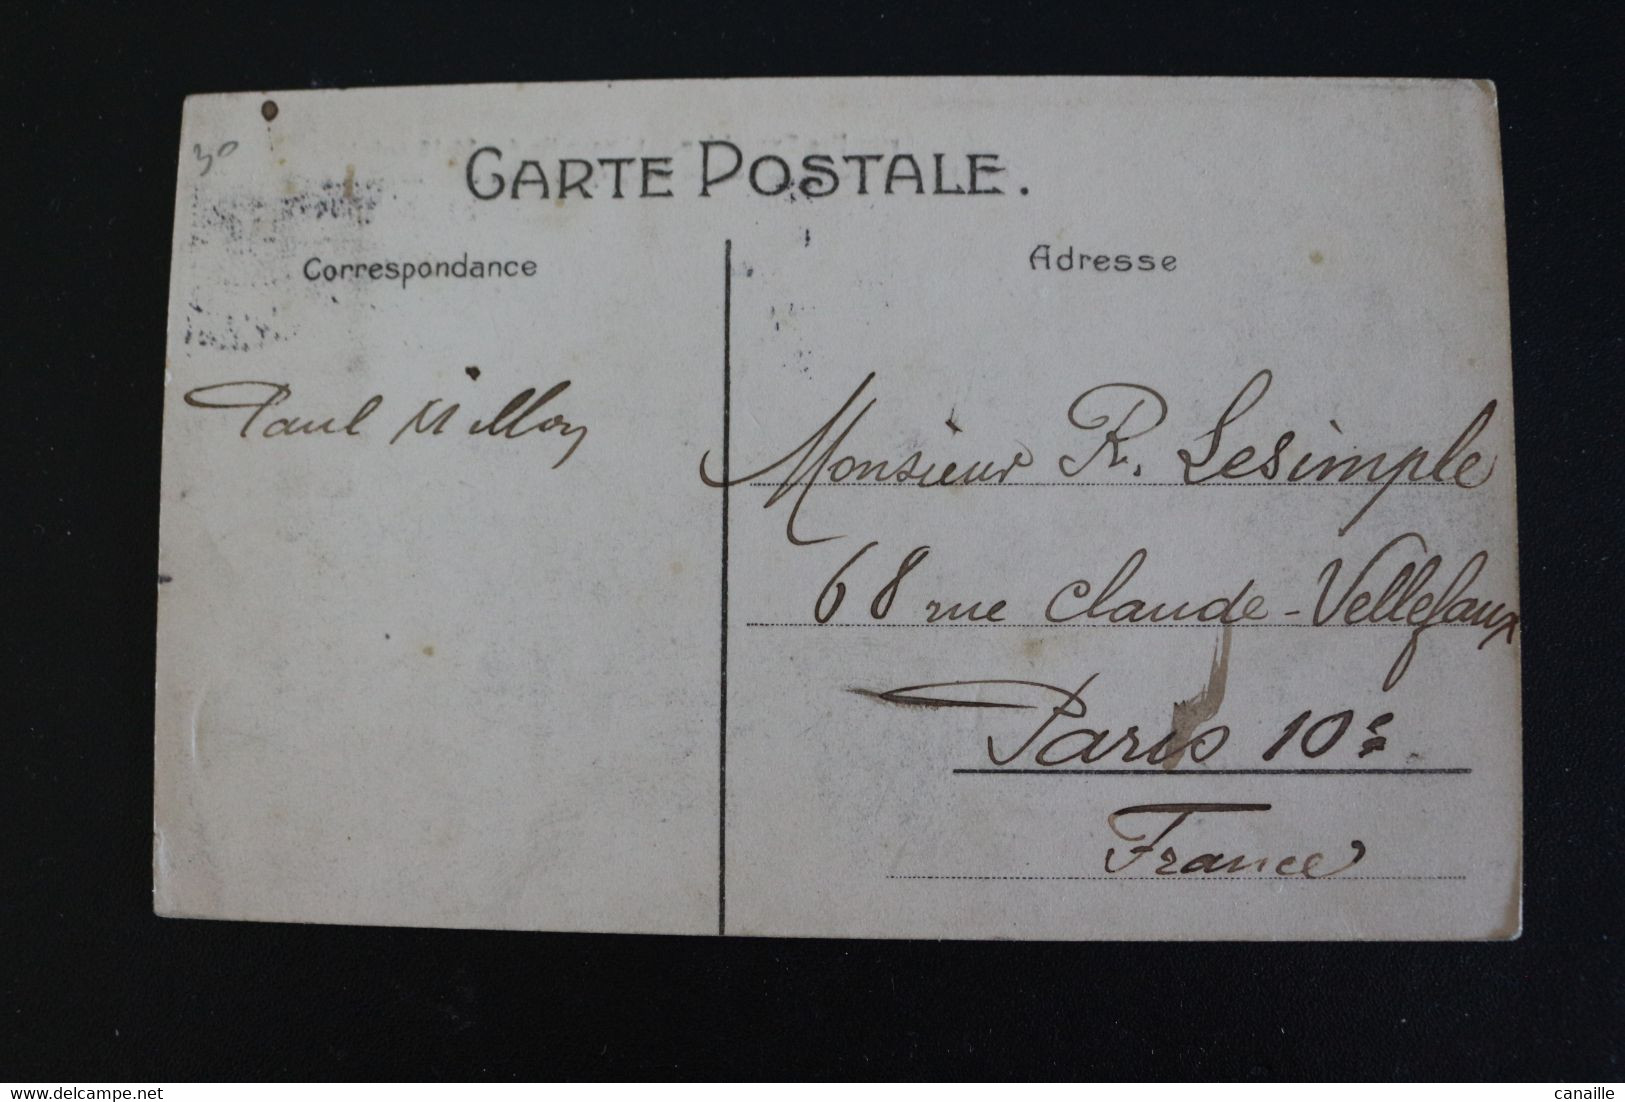 30
CARTE POSTALE.
Correspondance
Adresse
Paul Milloy
Monsieur R. Lesimple
68 rue Claude-Vellefaux
Paris 10e
France
canaille